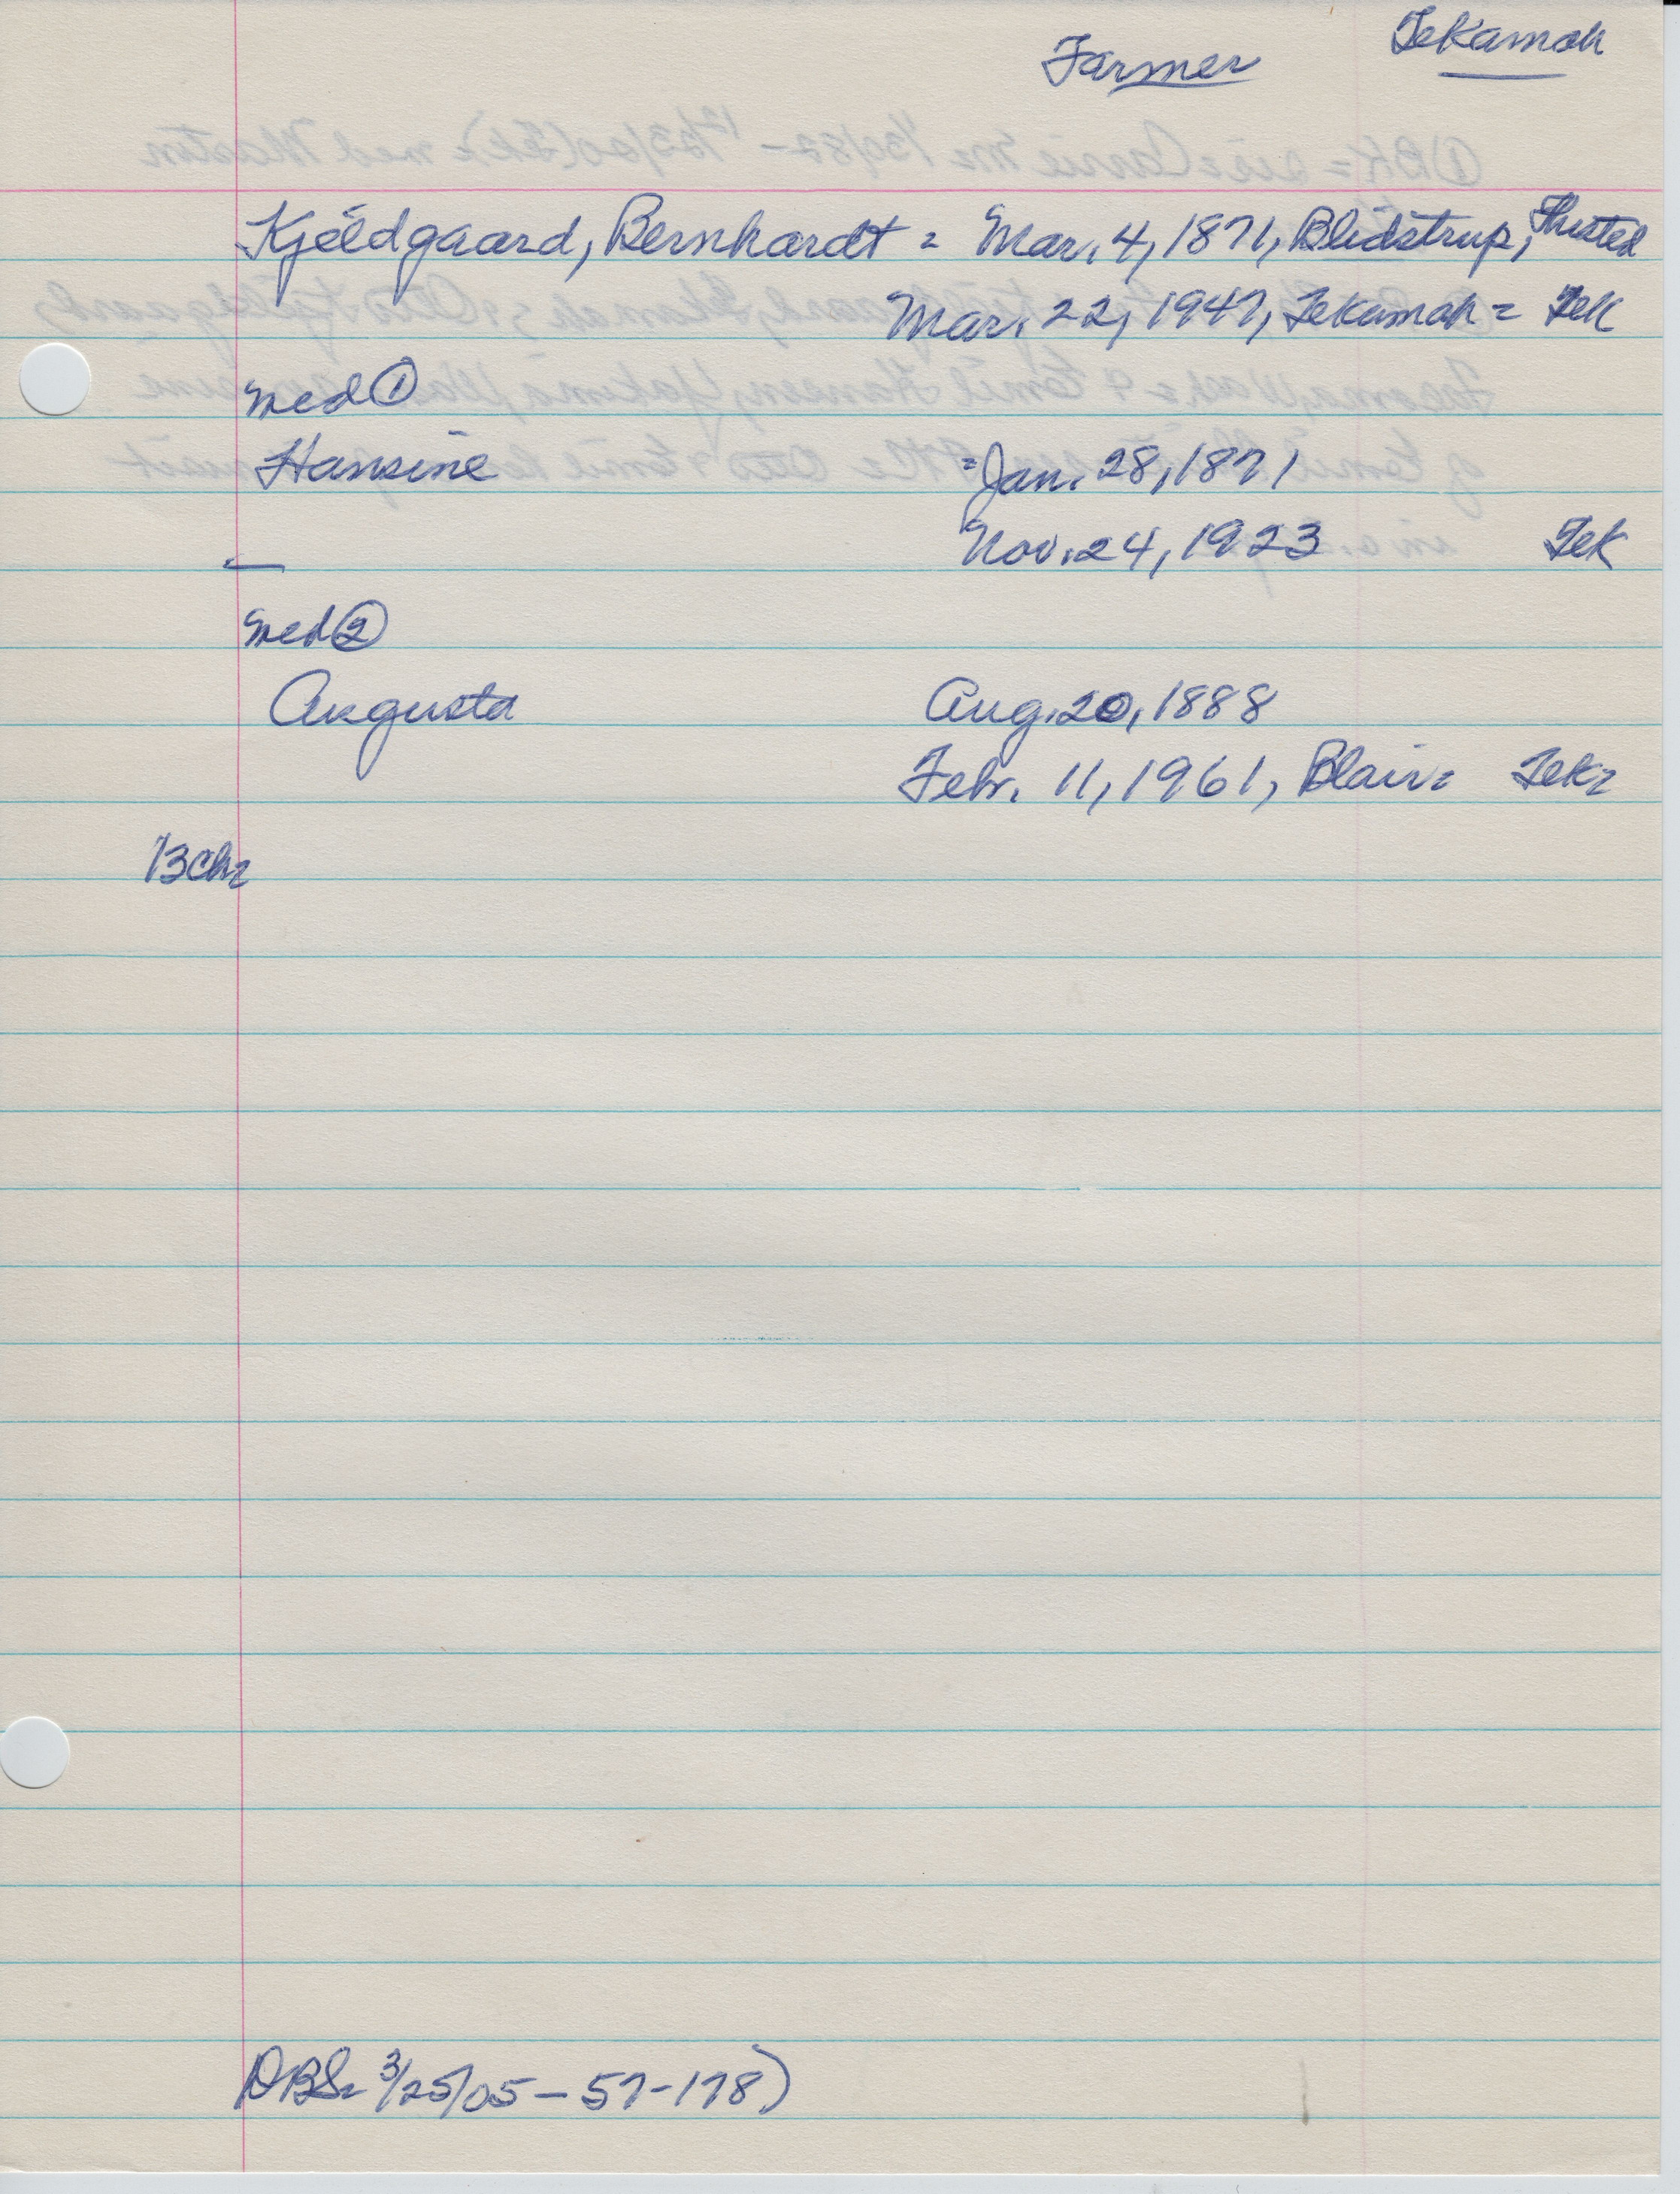 Farmer Tekamah
Kjeldgaard, Bernhardt = Mar. 4, 1871, Blidstrup, Thisted
Mar. 22, 1947, Tekamah = Tek
med ①
Hansine = Jan. 28, 1871
Nov. 24, 1923 Tek
med ②
Augusta Aug. 20, 1888
Febr. 11, 1961, Blair = Tek=
13 ch=
DBS= 3/25/05 – 57-178)